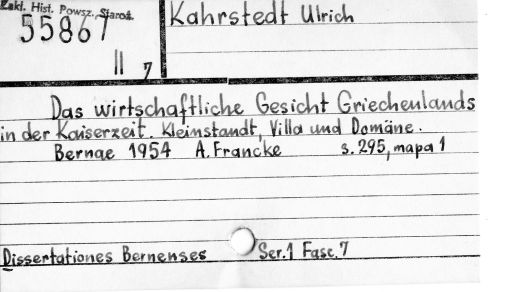 Zakł. Hist. Powsz. Staroż.
55867
II 7
Kahrstedt Ulrich
Das wirtschaftliche Gesicht Griechenlands
in der Kaiserzeit. Kleinstandt, Villa und Domäne.
Bernae 1954 A. Francke s. 295, mapa 1
Dissertationes Bernenses Ser.1 Fasc.7